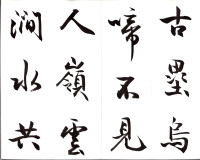 古壘烏
啼不見
人嶺雲
澗水共